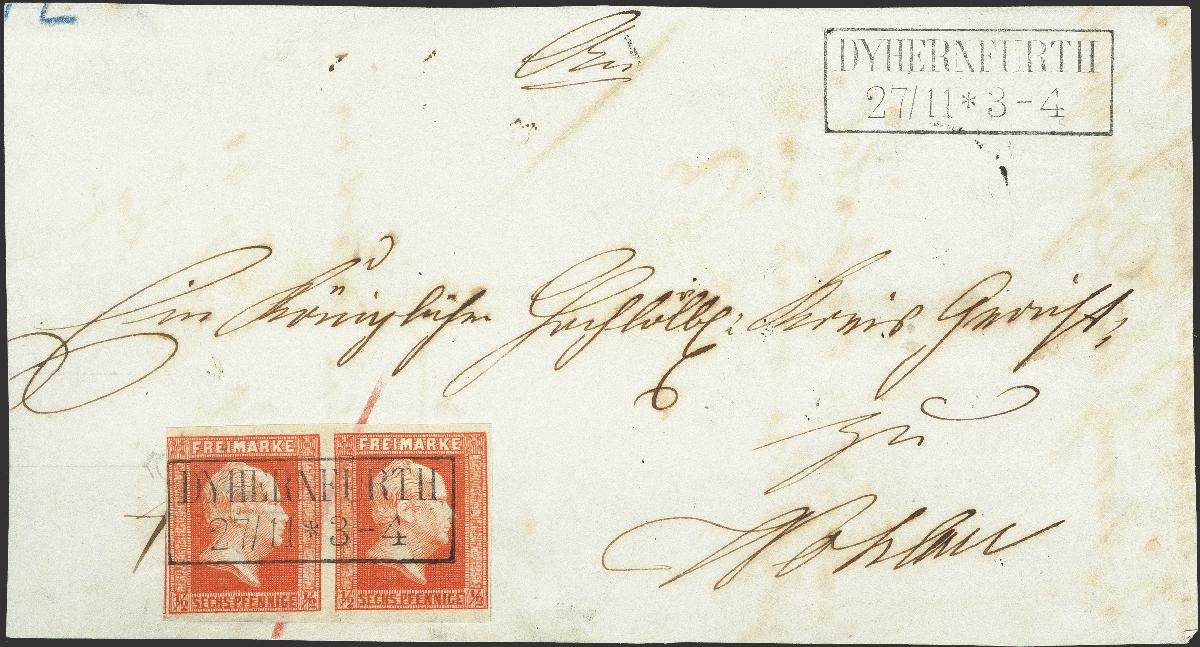 An
DYHERNFURTH
27/11 * 3-4
Ein Königliches Hochlöbl: Kreis Gericht,
zu
Wohlau
FREIMARKE FREIMARKE
DYHERNFURTH
27/11 * 3-4
1/2 SECHS PFENNIGE 1/2 1/2 SECHS PFENNIGE 1/2